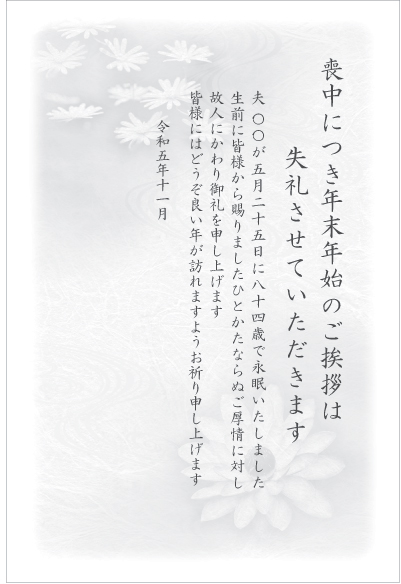 喪中につき年末年始のご挨拶は
失礼させていただきます
夫 〇〇が五月二十五日に八十四歳で永眠いたしました
生前に皆様から賜りましたひとかたならぬご厚情に対し
故人にかわり御礼を申し上げます
皆様にはどうぞ良い年が訪れますようお祈り申し上げます
令和五年十一月